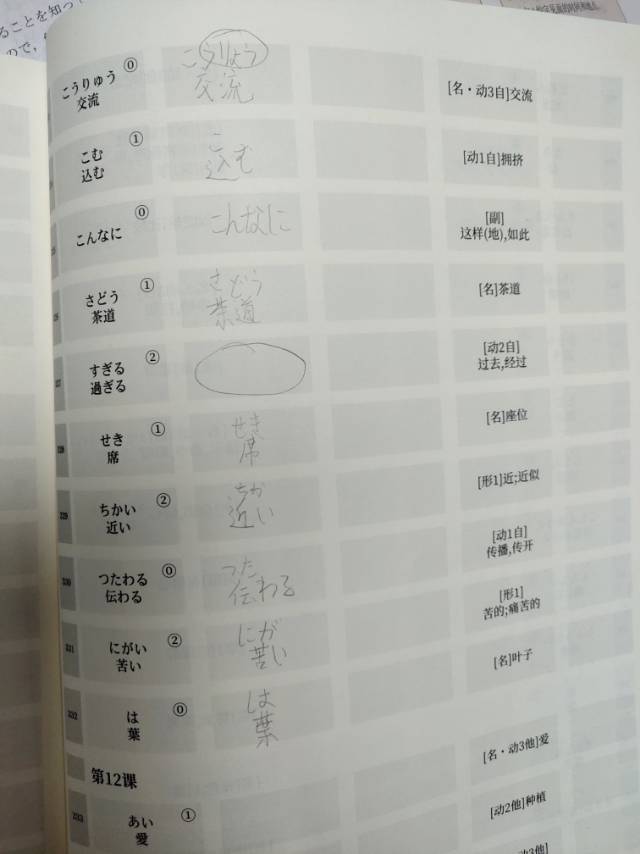 ることを知っ
ので、
こうりゅう ⓪ こうりょう
交流 交流 [名・动3自]交流
こむ ① こ
込む 込む [动1自]拥挤
こんなに ⓪ こんなに [副]
这样(地),如此
さどう ① さどう
茶道 茶道 [名]茶道
すぎる ② [动2自]
過ぎる 过去,经过
せき ① せき [名]座位
席 席
ちかい ② ちか [形1]近;近似
近い 近い
つたわる ⓪ つた [动1自]
伝わる 伝わる 传播,传开
にがい ② にが [形1]
苦い 苦い 苦的;痛苦的
は ⓪ は [名]叶子
葉 葉
第12课
あい ① [名・动3他]爱
愛
[动2他]种植
329
330
331
332
333